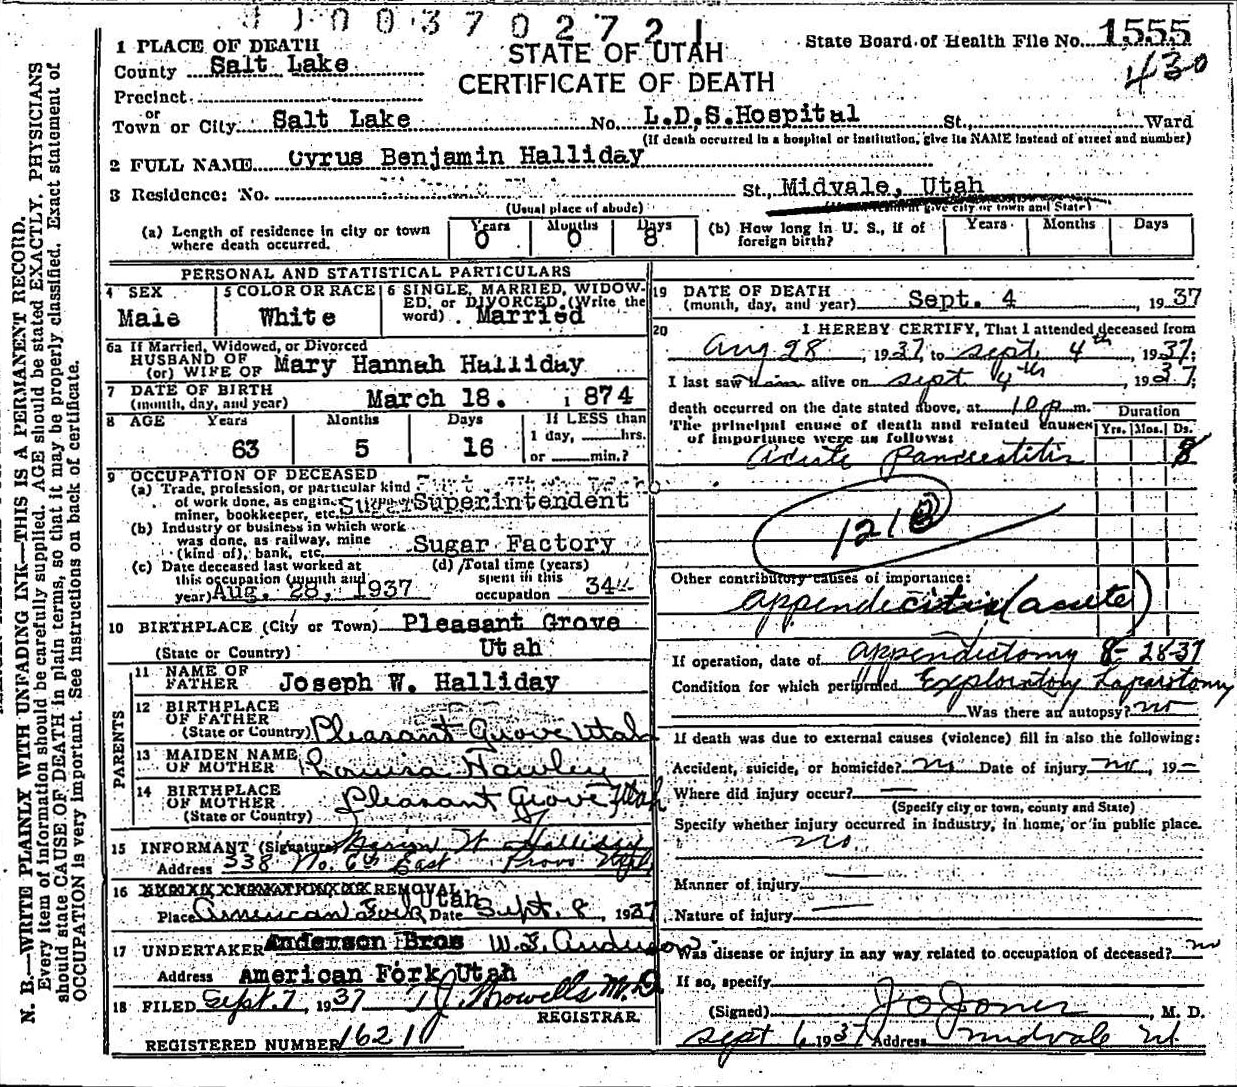 41003702721
1 PLACE OF DEATH
County Salt Lake
STATE OF UTAH
CERTIFICATE OF DEATH
State Board of Health File No. 1555
430
Precinct
or
Town or City Salt Lake No. L.D.S. Hospital St., Ward
(If death occurred in a hospital or institution, give its NAME instead of street and number)
2 FULL NAME Cyrus Benjamin Halliday
3 Residence: No. St., Midvale, Utah
(Usual place of abode) give city or town and State)
(a) Length of residence in city or town where death occurred. Years 0 Months 0 Days 8
(b) How long in U. S., if of foreign birth? Years Months Days
PERSONAL AND STATISTICAL PARTICULARS
4 SEX Male
5 COLOR OR RACE White
6 SINGLE, MARRIED, WIDOWED, or DIVORCED (Write the word) Married
6a If Married, Widowed, or Divorced
HUSBAND OF
(or) WIFE OF Mary Hannah Halliday
7 DATE OF BIRTH
(month, day, and year) March 18. 1874
8 AGE Years 63 Months 5 Days 16 If LESS than 1 day, hrs. or min.?
9 OCCUPATION OF DECEASED
(a) Trade, profession, or particular kind of work done, as engineer, miner, bookkeeper, etc. Sugar Superintendent
(b) Industry or business in which work was done, as railway, mine (kind of), bank, etc. Sugar Factory
(c) Date deceased last worked at this occupation (month and year) Aug. 28, 1937
(d) Total time (years) spent in this occupation 34
10 BIRTHPLACE (City or Town) Pleasant Grove
(State or Country) Utah
PARENTS
11 NAME OF FATHER Joseph W. Halliday
12 BIRTHPLACE OF FATHER
(State or Country) Pleasant Grove Utah
13 MAIDEN NAME OF MOTHER Louisa Hawley
14 BIRTHPLACE OF MOTHER
(State or Country) Pleasant Grove Utah
15 INFORMANT (Signature) Halliday
Address 338 No. 6th East Provo
16 REMOVAL
Utah
Place American Fork Date Sept. 8, 1937
17 UNDERTAKER Anderson Bros W. F. Anderson
Address American Fork Utah
18 FILED Sept. 7, 1937 T J Howells M.D.
REGISTRAR
REGISTERED NUMBER 1621
19 DATE OF DEATH
(month, day, and year) Sept. 4, 1937
20 I HEREBY CERTIFY, That I attended deceased from
Aug 28, 1937 to Sept. 4th, 1937;
I last saw him alive on Sept 4th, 1937;
death occurred on the date stated above, at 10 p m.
The principal cause of death and related causes of importance were as follows:
Duration
Yrs. Mos. Ds.
Acute Pancreatitis 8
121
Other contributory causes of importance:
Appendicitis (acute)
If operation, date of appendictomy 8-28-37
Condition for which performed Exploratory Laparotomy
Was there an autopsy? no
If death was due to external causes (violence) fill in also the following:
Accident, suicide, or homicide? no Date of injury no, 19–
Where did injury occur? —
(Specify city or town, county and State)
Specify whether injury occurred in industry, in home, or in public place.
no
Manner of injury —
Nature of injury —
Was disease or injury in any way related to occupation of deceased? no
If so, specify
(Signed) J O Jones, M. D.
Sept 6 1937 Address Midvale Ut.
N. B.—WRITE PLAINLY WITH UNFADING INK—THIS IS A PERMANENT RECORD.
Every item of information should be carefully supplied. AGE should be stated EXACTLY. PHYSICIANS
should state CAUSE OF DEATH in plain terms, so that it may be properly classified. Exact statement of
OCCUPATION is very important. See instructions on back of certificate.